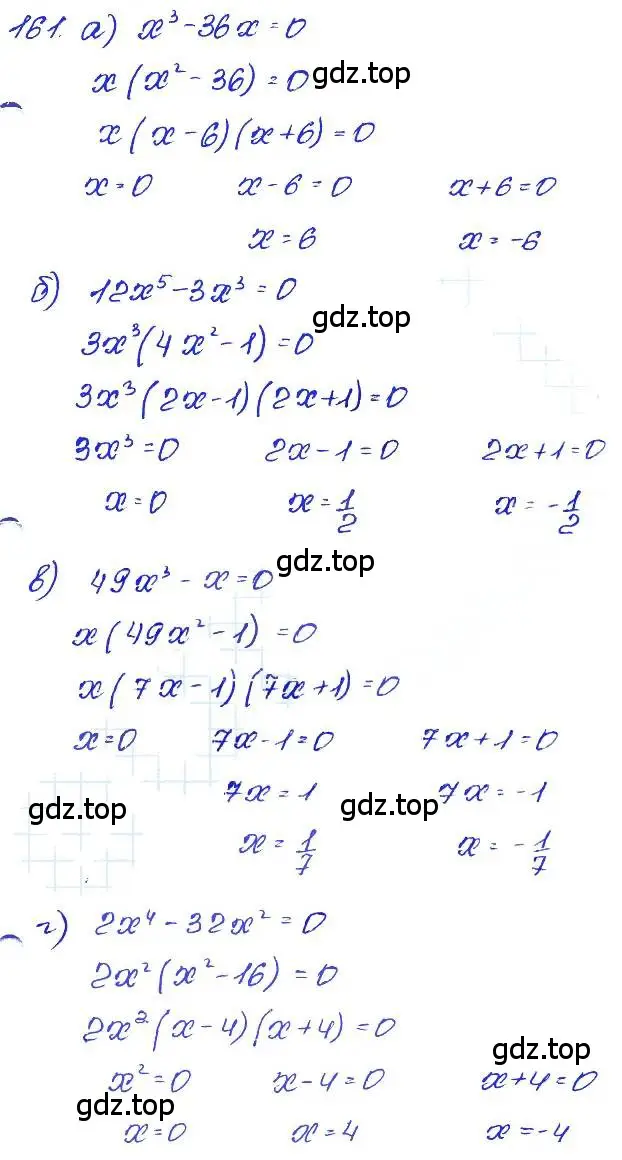 161. а) x³ - 36x = 0
x (x² - 36) = 0 gdz.top
x (x - 6) (x + 6) = 0
x = 0 x - 6 = 0 x + 6 = 0
x = 6 x = -6
б) 12x⁵ - 3x³ = 0
3x³ (4x² - 1) = 0 gdz.top
3x³ (2x - 1) (2x + 1) = 0
3x³ = 0 2x - 1 = 0 2x + 1 = 0
x = 0 x = 1/2 x = - 1/2
в) 49x³ - x = 0 gdz.top
x (49x² - 1) = 0
x (7x - 1) (7x + 1) = 0
x = 0 7x - 1 = 0 7x + 1 = 0
gdz.top 7x = 1 gdz.top 7x = -1
x = 1/7 x = - 1/7
г) 2x⁴ - 32x² = 0
2x² (x² - 16) = 0
2x² (x - 4) (x + 4) = 0 gdz.top
x² = 0 x - 4 = 0 x + 4 = 0
gdz.top
x = 0 x = 4 x = -4